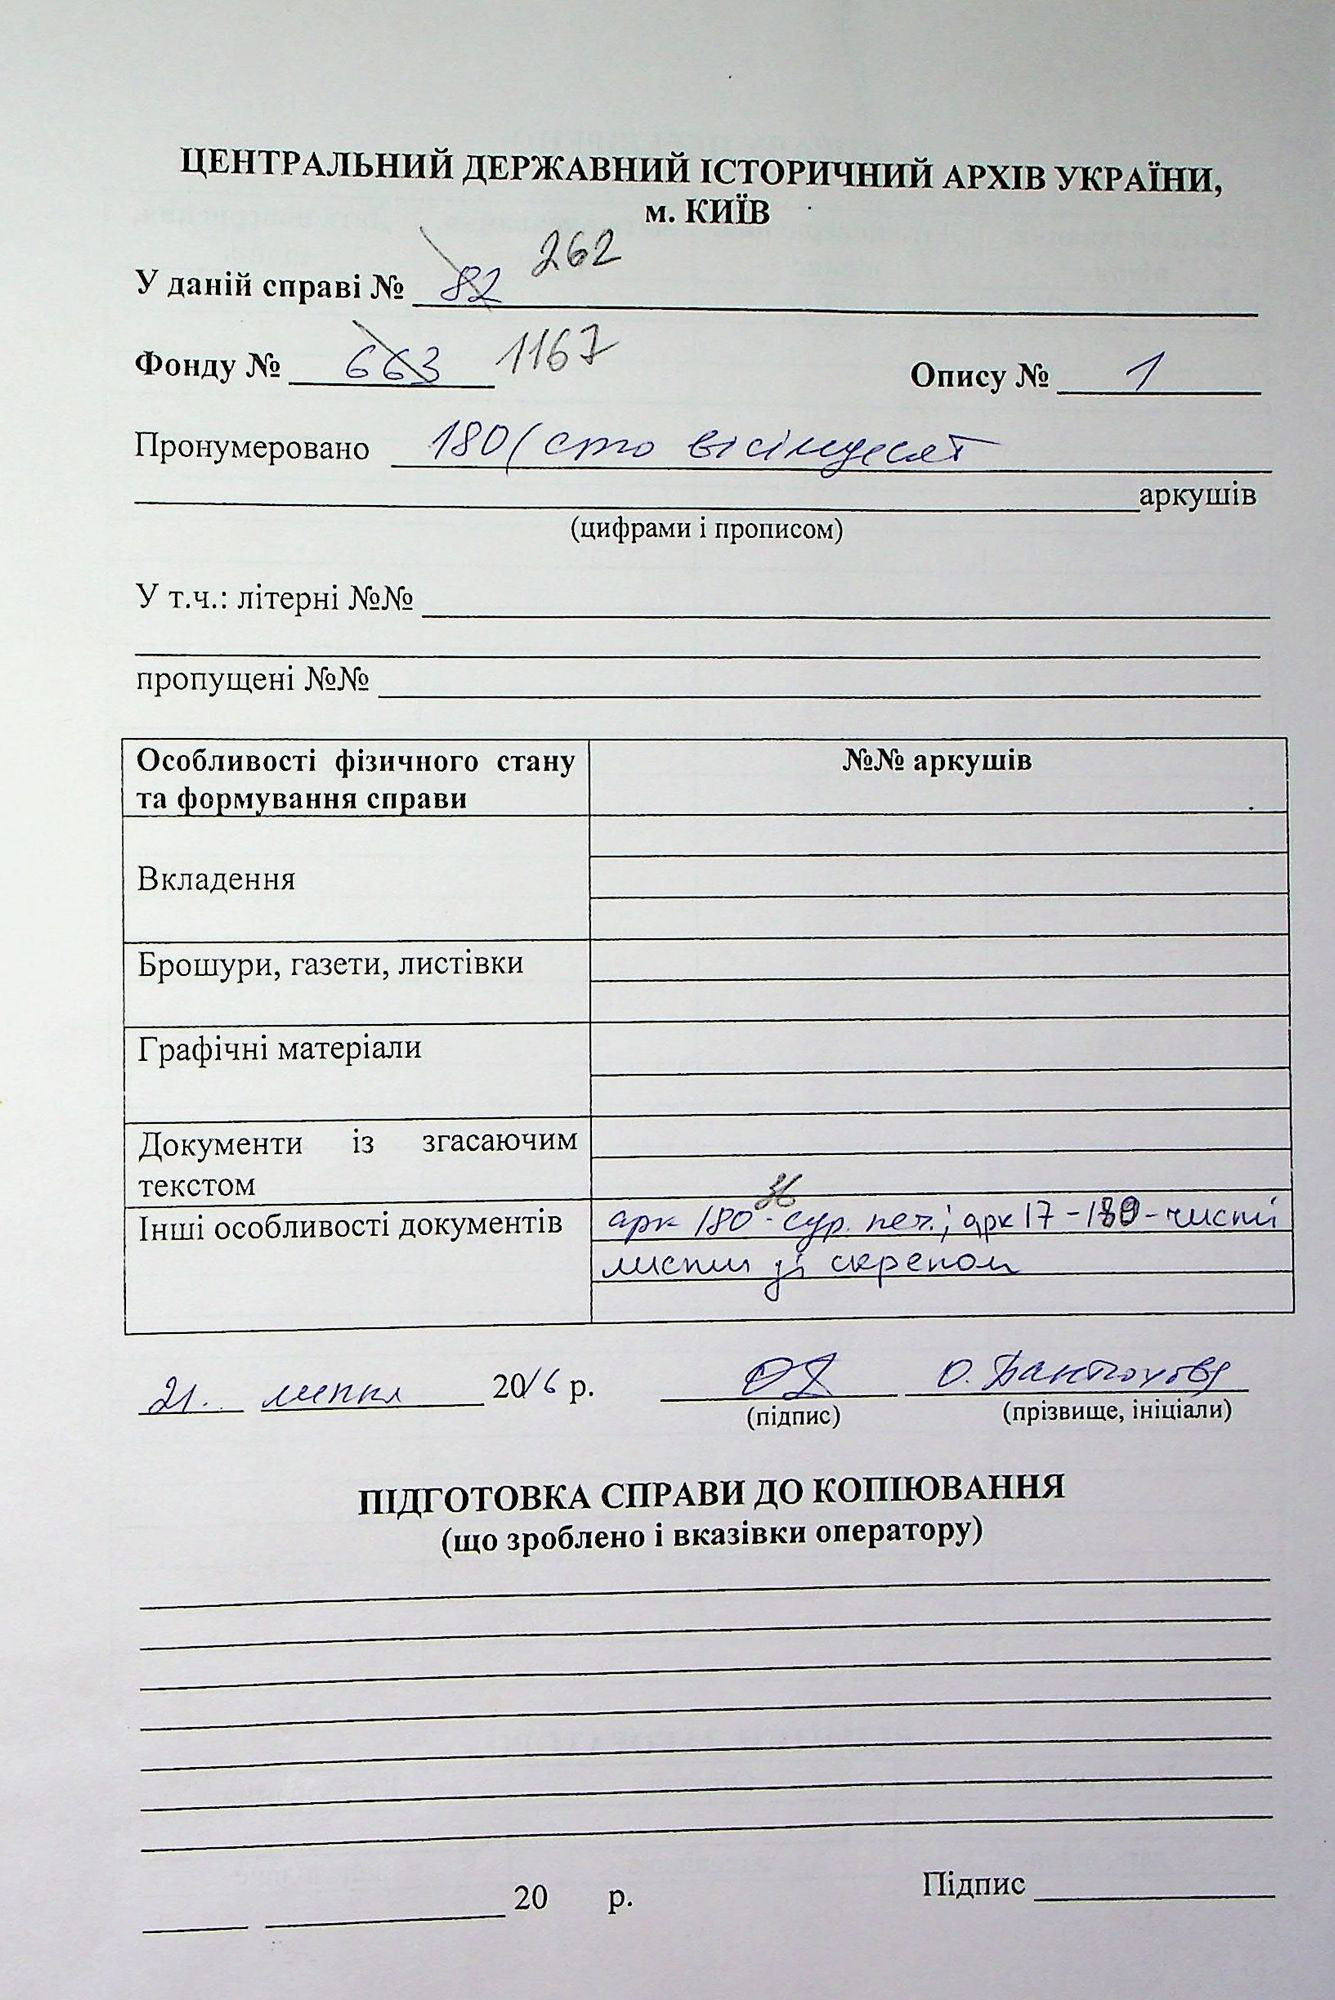 ЦЕНТРАЛЬНИЙ ДЕРЖАВНИЙ ІСТОРИЧНИЙ АРХІВ УКРАЇНИ,
м. КИЇВ
У даній справі № 82 262
Фонду № 663 1167 Опису № 1
Пронумеровано 180 (сто вісімдесят
аркушів
(цифрами і прописом)
У т.ч.: літерні №№
пропущені №№
Особливості фізичного стану
та формування справи
№№ аркушів
Вкладення
Брошури, газети, листівки
Графічні матеріали
Документи із згасаючим
текстом
Інші особливості документів
арк 180 - сур. печ.; арк 17 - 180 - чисті
листи зі скрепом
21. липня 2016 р.
(підпис) (прізвище, ініціали)
ПІДГОТОВКА СПРАВИ ДО КОПІЮВАННЯ
(що зроблено і вказівки оператору)
20 р. Підпис